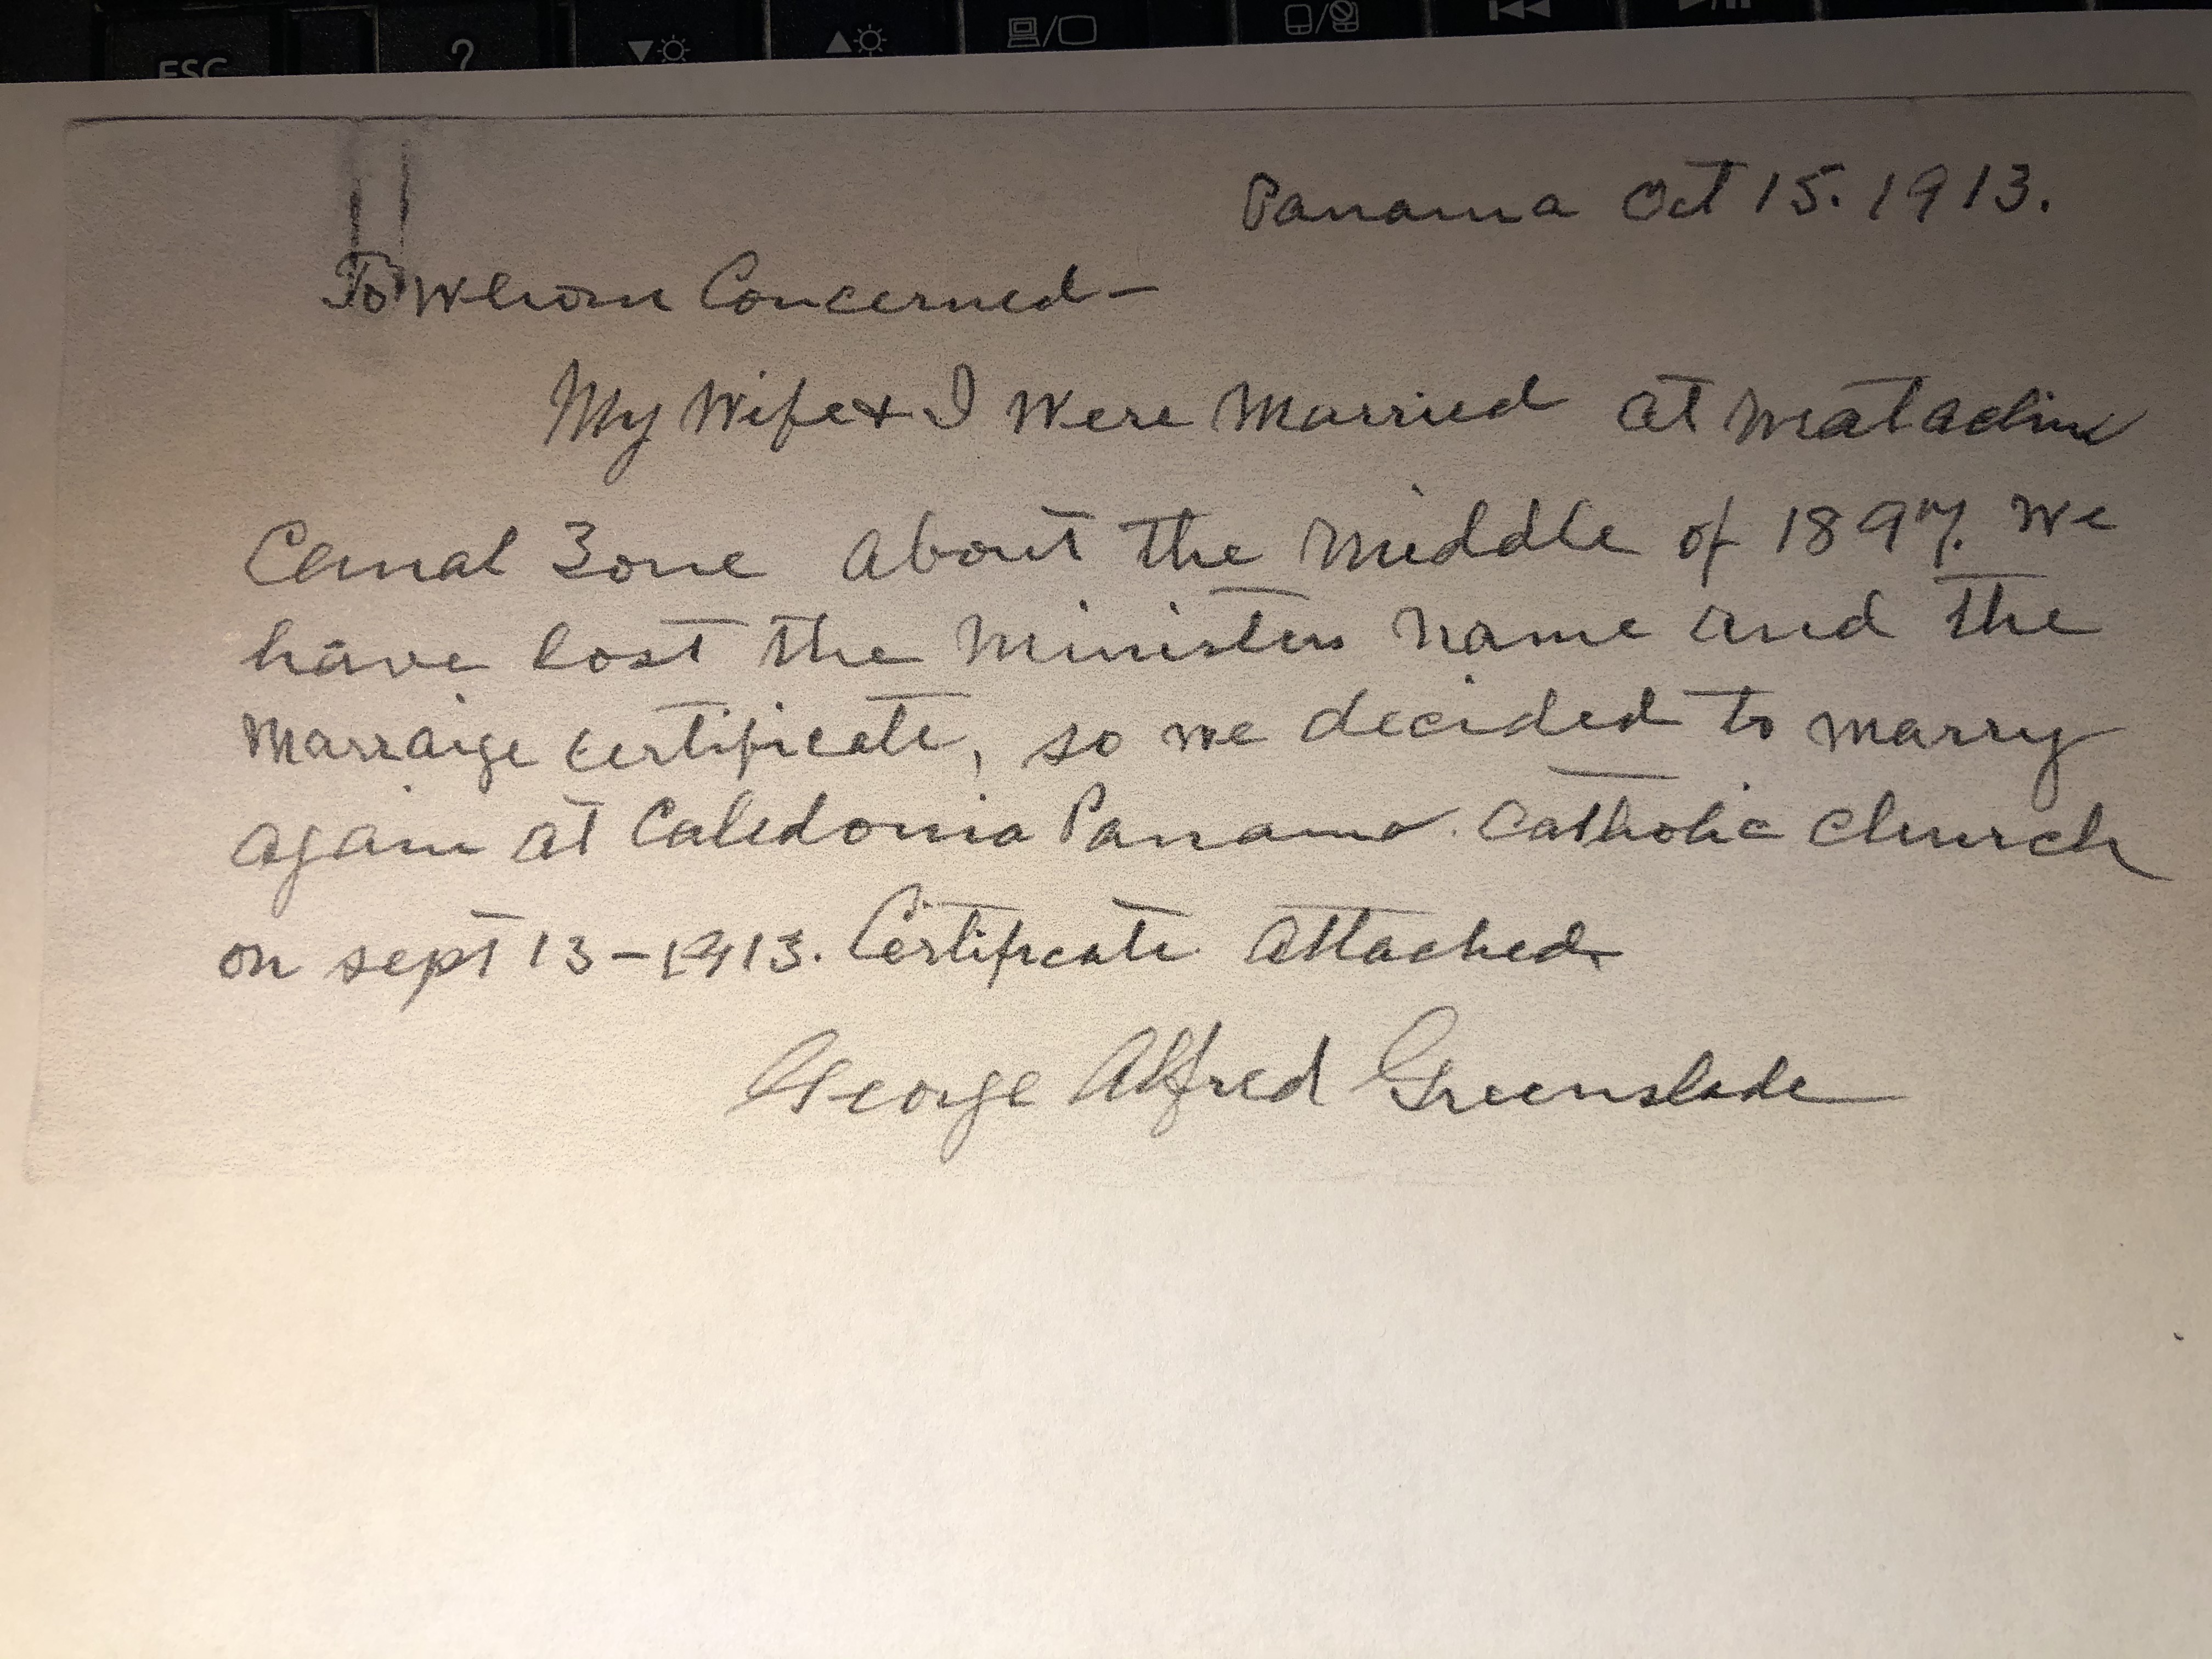 ESC ?
Panama Oct 15. 1913.
To Whom Concerned-
My Wife & I Were Married at Matachin
Canal Zone about the Middle of 1897. We
have lost the Ministers name and the
Marraige certificate, so we decided to marry
again at Caledonia Panama. Catholic Church
on sept 13-1913. Certificate attached.
George Alfred Greenslade